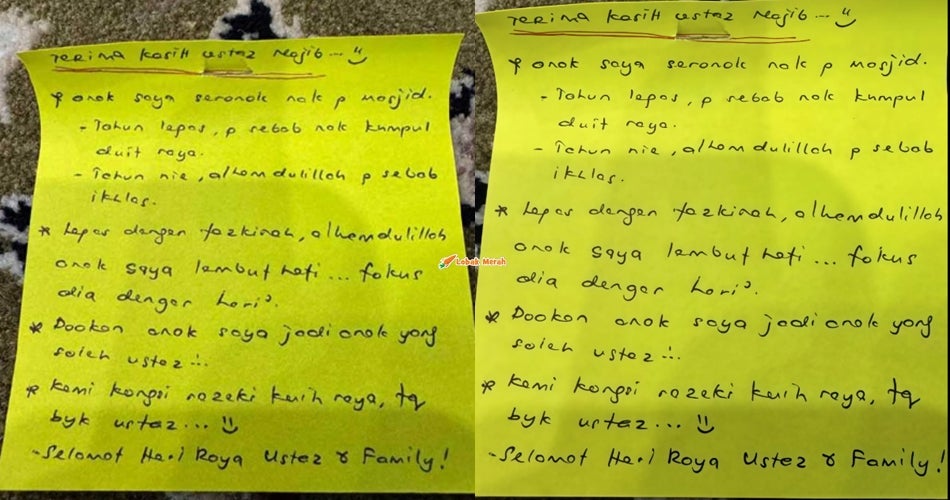 Terima Kasih Ustaz Najib...
* anak saya seronok nak p masjid.
- Tahun lepas, p sebab nak kumpul
duit raya.
- Tahun nie, alhamdulillah p sebab
ikhlas.
* Lepas dengar tazkirah, alhamdulillah
anak saya lembut hati... fokus
dia dengar hari².
* Doakan anak saya jadi anak yang
soleh ustaz...
* Kami kongsi razeki kuih raya, tq
byk ustaz...
~Selamat Hari Raya Ustaz & Family!
Terima Kasih Ustaz Najib...
* anak saya seronok nak p masjid.
- Tahun lepas, p sebab nak kumpul
duit raya.
- Tahun nie, alhamdulillah p sebab
ikhlas.
* Lepas dengar tazkirah, alhamdulillah
anak saya lembut hati... fokus
dia dengar hari².
* Doakan anak saya jadi anak yang
soleh ustaz...
* Kami kongsi razeki kuih raya, tq
byk ustaz...
~Selamat Hari Raya Ustaz & Family!
Lobak Merah